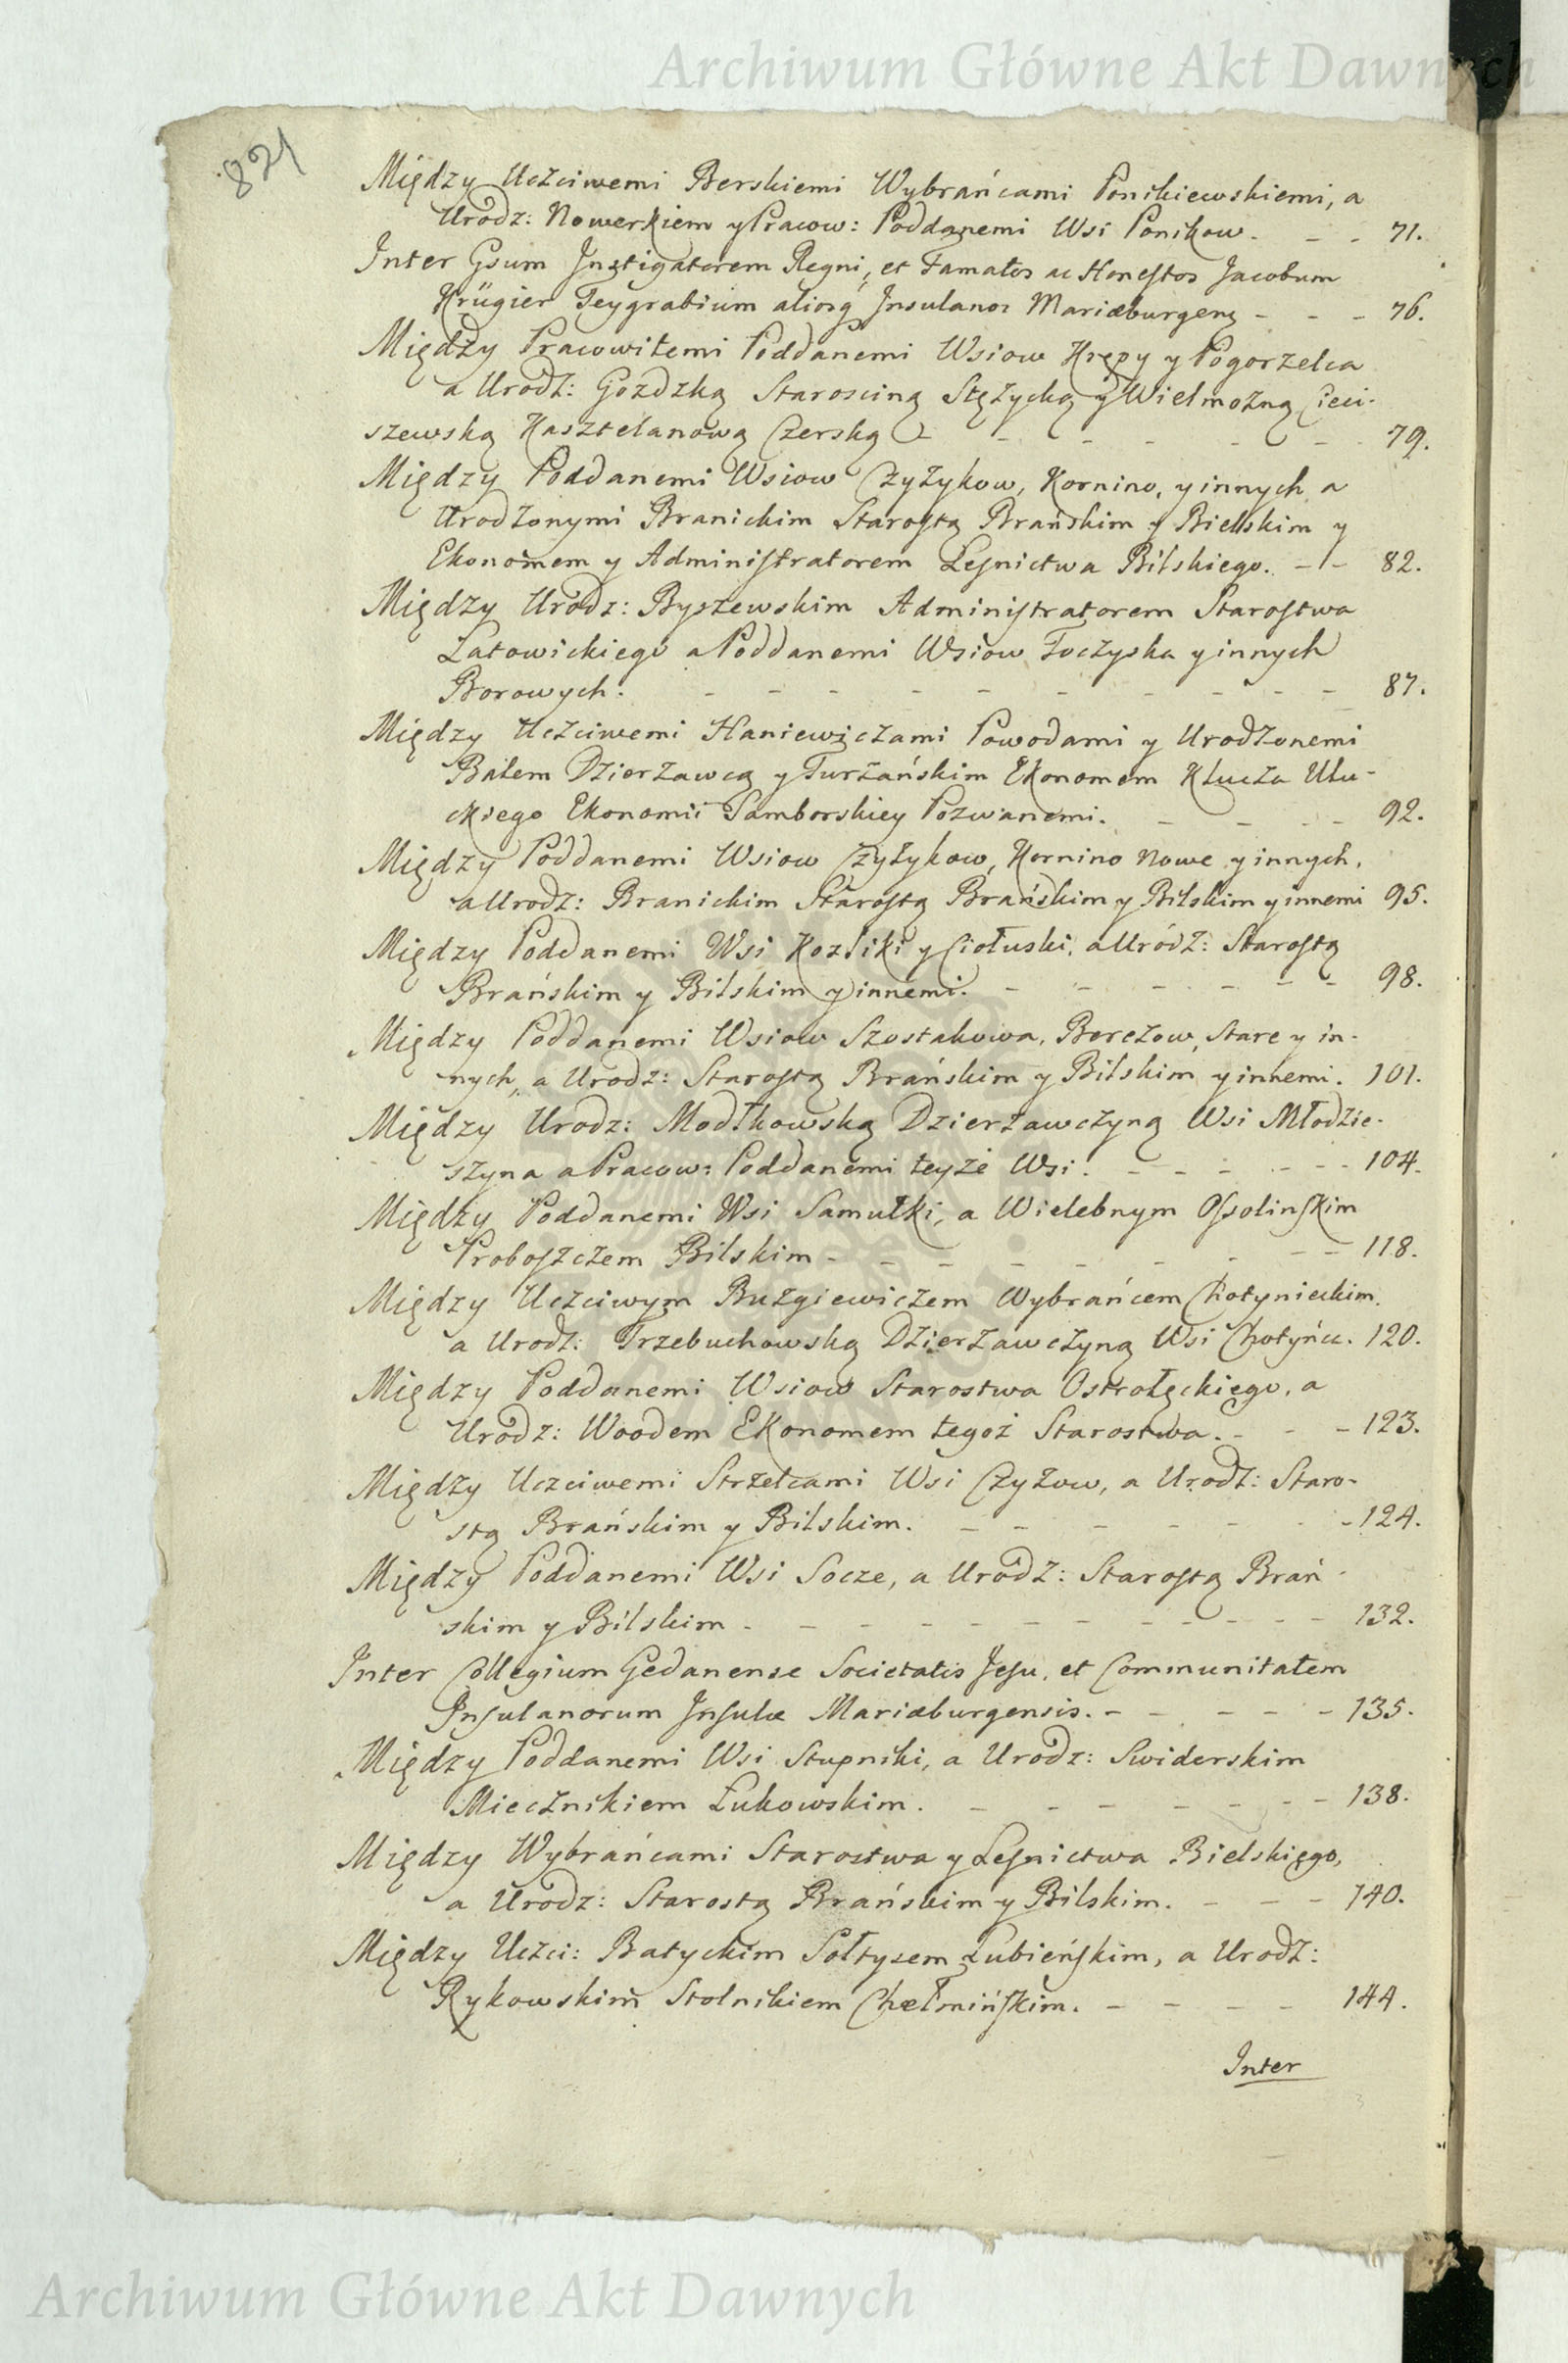 Archiwum Główne Akt Dawnych
821
Między Uczciwemi Berskiemi Wybrańcami Ponikiewskiemi, a
Urodz: Nowerskiem y Pracow: Poddanemi Wsi Ponikow. - - 71.
Inter Gsum Instigatorem Regni, et Famatos ac Honestos Jacobum
Krügier Teygrabium aliosq Insulanos Mariæburgens - - - 76.
Między Pracowitemi Poddanemi Wsiow Krępy y Pogorzelca
a Urodz: Gozdzką Starosciną Stężycką y Wielmożną Cieci-
szewską Kasztelanową Czerską - - - - - - 79.
Między Poddanemi Wsiow Czyżykow, Kornino, y innych a
Urodzonymi Branickim Starostą Brańskim y Bielskim y
Ekonomem y Administratorem Lesnictwa Bilskiego. - - 82.
Między Urodz: Byszewskim Administratorem Starostwa
Latowickiego a Poddanemi Wsiow Toczyska y innych
Borowych: - - - - - - - - - - 87.
Między Uczciwemi Haniewiczami Powodami y Urodzonemi
Balem Dzierzawcą y Turzańskim Ekonomem Klucza Ułu-
ckiego Ekonomii Samborskiey Pozwanemi. - - - - 92.
Między Poddanemi Wsiow Czyżykow, Kornino Nowe y innych,
a Urodz: Branickim Starostą Brańskim y Bilskim y innemi 95.
Między Poddanemi Wsi Kozliki y Ciołuski, a Urodz: Starostą
Brańskim y Bilskim y innemi. - - - - - - 98.
Między Poddanemi Wsiow Szostakowa, Boreżow, Stare y in-
nych, a Urodz: Starostą Brańskim y Bilskim y innemi. 101.
Między Urodz: Modłkowską Dzierzawczyną Wsi Młodzie-
szyna a Pracow: Poddanemi teyże Wsi. - - - - - - 104.
Między Poddanemi Wsi Samułki, a Wielebnym Ossolinskim
Proboszczem Bilskim - - - - - - - - - 118.
Między Uczciwym Buzgiewiczem Wybrańcem Chotynieckim,
a Urodz: Trzebuchowską Dzierzawczyną Wsi Chotyńcu. 120.
Między Poddanemi Wsiow Starostwa Ostrołęckiego, a
Urodz: Woodem Ekonomem tegoż Starostwa. - - - 123.
Między Uczciwemi Strzelcami Wsi Czyżow, a Urodz: Staro-
stą Brańskim y Bilskim. - - - - - - - 124.
Między Poddanemi Wsi Socze, a Urodz: Starostą Brań-
skim y Bilskim - - - - - - - - - - 132.
Inter Collegium Gedanense Societatis Jesu, et Communitatem
Insulanorum Insulæ Mariæburgensis. - - - - - 135.
Między Poddanemi Wsi Stupniki, a Urodz: Swiderskim
Miecznikiem Łukowskim. - - - - - - - 138.
Między Wybrańcami Starostwa y Lesnictwa Bielskiego,
a Urodz: Starostą Brańskim y Bilskim. - - - 140.
Między Uczci: Batyckim Sołtysem Łubieńskim, a Urodz:
Rykowskim Stolnikiem Chełmińskim. - - - - 144.
Inter
Archiwum Główne Akt Dawnych